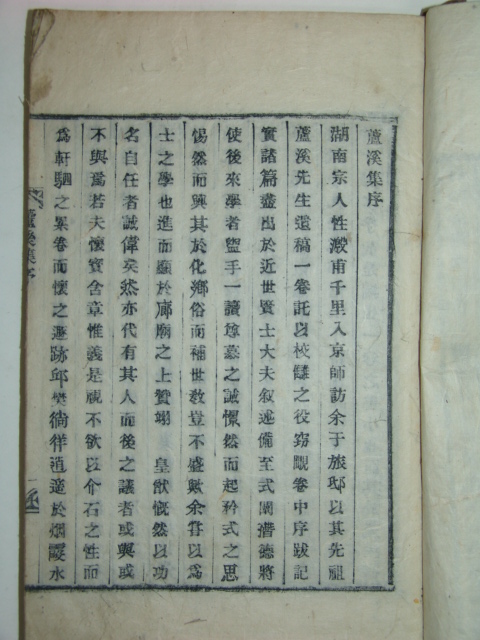 蘆溪集序
湖南宗人性澱甫千里入京師訪余于旅邸以其先祖
蘆溪先生遺稿一卷託以校讎之役窃覸卷中序跋記
實諸篇盡出於近世賢士大夫叙述備至式闡潛德將
使後來學者盥手一讀尊慕之誠愀然而起矜式之思
惕然而興其於化鄉俗而補世敎豈不盛歟余甞以爲
士之學也進而顯於廊廟之上贊翊 皇猷慨然以功
名自任者誠偉矣然亦代有其人而後之議者或與或
不與焉若夫懷寶含章惟義是視不欲以介石之性而
爲軒駟之累卷而懷之遯跡邱樊徜徉逍遙於烟霞水
蘆溪集序